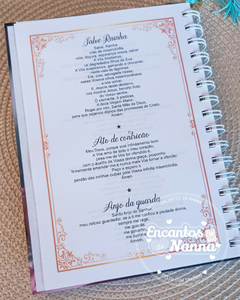 Salve Rainha
Salve, Rainha,
mãe de misericórdia,
vida, doçura, esperança nossa, salve!
A Vós bradamos,
os degredados filhos de Eva.
A Vós suspiramos, gemendo e chorando
neste vale de lágrimas.
Eia, pois, advogada nossa,
esses Vossos olhos misericordiosos
a nós volvei.
E, depois deste desterro,
nos mostrai Jesus, bendito fruto
do Vosso ventre.
Ó clemente, ó piedosa,
ó doce Virgem Maria.
Rogai por nós, Santa Mãe de Deus,
para que sejamos dignos das promessas de Cristo.
Amém.
Ato de contrição
Meu Deus, porque sois infinitamente bom
e Vos amo de todo o meu coração,
pesa-me de Vos ter ofendido e,
com o auxílio da Vossa divina graça, proponho
firmemente emendar-me e nunca mais Vos tornar a ofender.
Peço e espero o
perdão das minhas culpas pela Vossa infinita misericórdia.
Amém.
Anjo da guarda
Santo Anjo do Senhor,
meu zeloso guardador, se a ti me confiou a piedade divina,
sempre me rege,
me guarde,
me
Amém.
Encantos
da
Nanna